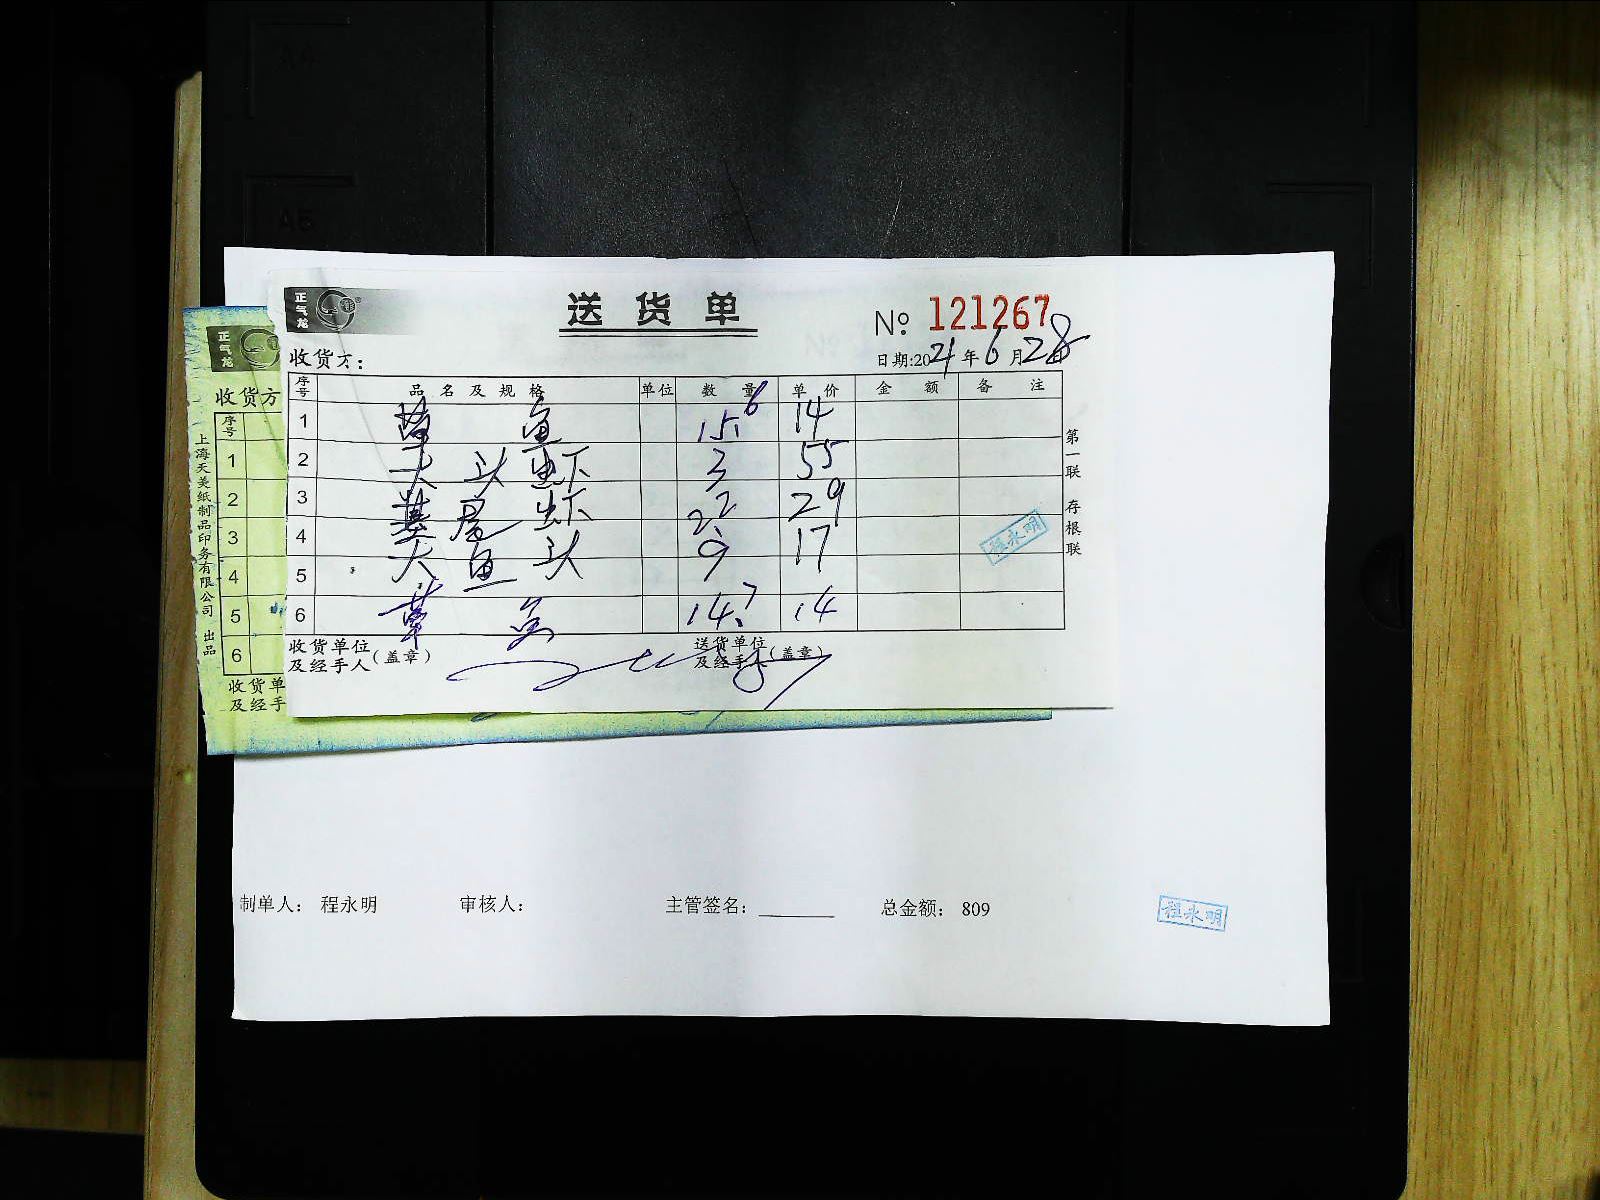 A4
A5
正气龙
送货单
№ 121267
收货方：
日期:2021年6月28日
序号 品名及规格 单位 数量 单价 金额 备注
1 草鱼 15.6 14
2 大头虾 3 55
3 基尾虾 2.2 29
4 大鱼头 9 17
5
6 草鱼 14.7 14
收货单位及经手人(盖章)
送货单位及经手人(盖章)
第一联 存根联
程永明
正气龙
收货方
序号
1
2
3
4
5
6
收货单
及经手
上海天美纸制品印务有限公司 出品
制单人： 程永明 审核人： 主管签名：________ 总金额： 809
程永明